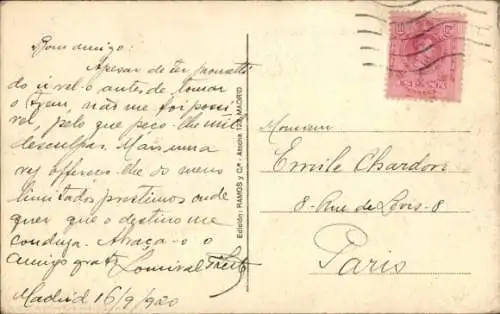 Bom amigo:
Apesar de ter promettido
ir vel-o antes de tomar
o trem, não me foi possi
vel, pelo que peço-lhe mil
desculpas. Mais uma
vez offereço-lhe os meus
limitados prestimos onde
quer que o destino me
conduza. Abraça-o o
amigo grato
Madrid 16/9/920
Edición: RAMOS y Cª - Atocha 12, MADRID
ESPAÑA
Monsieur
Emile Chardon
8 - Rue de - 8
Paris